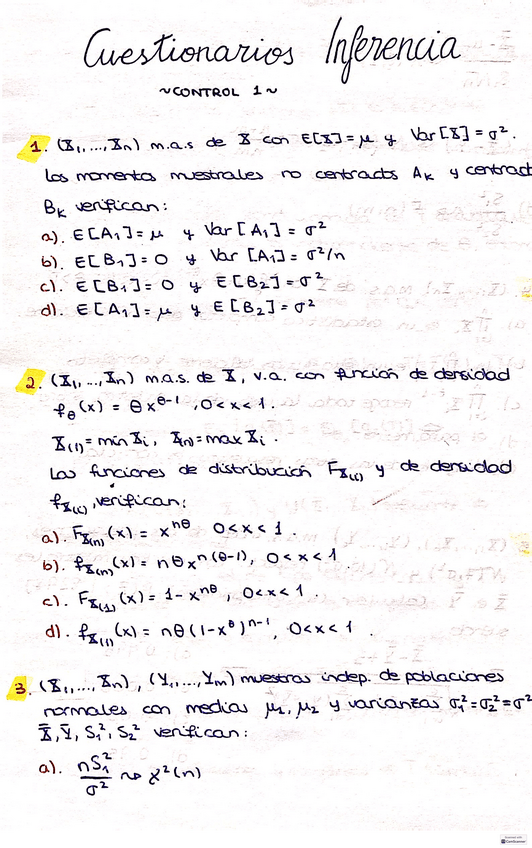 Cuestionarios Inferencia
~CONTROL 1~
1. (X₁,...,Xn) m.a.s de X con E[X]=μ y Var[X]=σ².
Los momentos muestrales no centrados Aₖ y centrad
Bₖ verifican:
a). E[A₁]=μ y Var[A₁]=σ²
b). E[B₁]=0 y Var[A₁]=σ²/n
c). E[B₁]=0 y E[B₂]=σ²
d). E[A₁]=μ y E[B₂]=σ²
2. (X₁,...,Xn) m.a.s. de X, v.a. con función de densidad
f_θ(x) = θx^(θ-1), 0<x<1.
X₍₁₎=min Xᵢ, X₍ₙ₎=max Xᵢ.
Las funciones de distribución F_X₍ᵢ₎ y de densidad
f_X₍ᵢ₎, verifican:
a). F_X₍ₙ₎(x) = x^(nθ) 0<x<1.
b). f_X₍ₙ₎(x) = nθx^(n(θ-1)), 0<x<1
c). F_X₍₁₎(x) = 1-x^(nθ), 0<x<1.
d). f_X₍₁₎(x) = nθ(1-x^θ)^(n-1), 0<x<1.
3. (X₁,...,Xn), (Y₁,...,Ym) muestras indep. de poblaciones
normales con medias μ₁, μ₂ y varianzas σ₁²=σ₂²=σ²
X̄, Ȳ, S₁², S₂² verifican:
a). nS₁²/σ² ~> χ²(n)
CamScanner